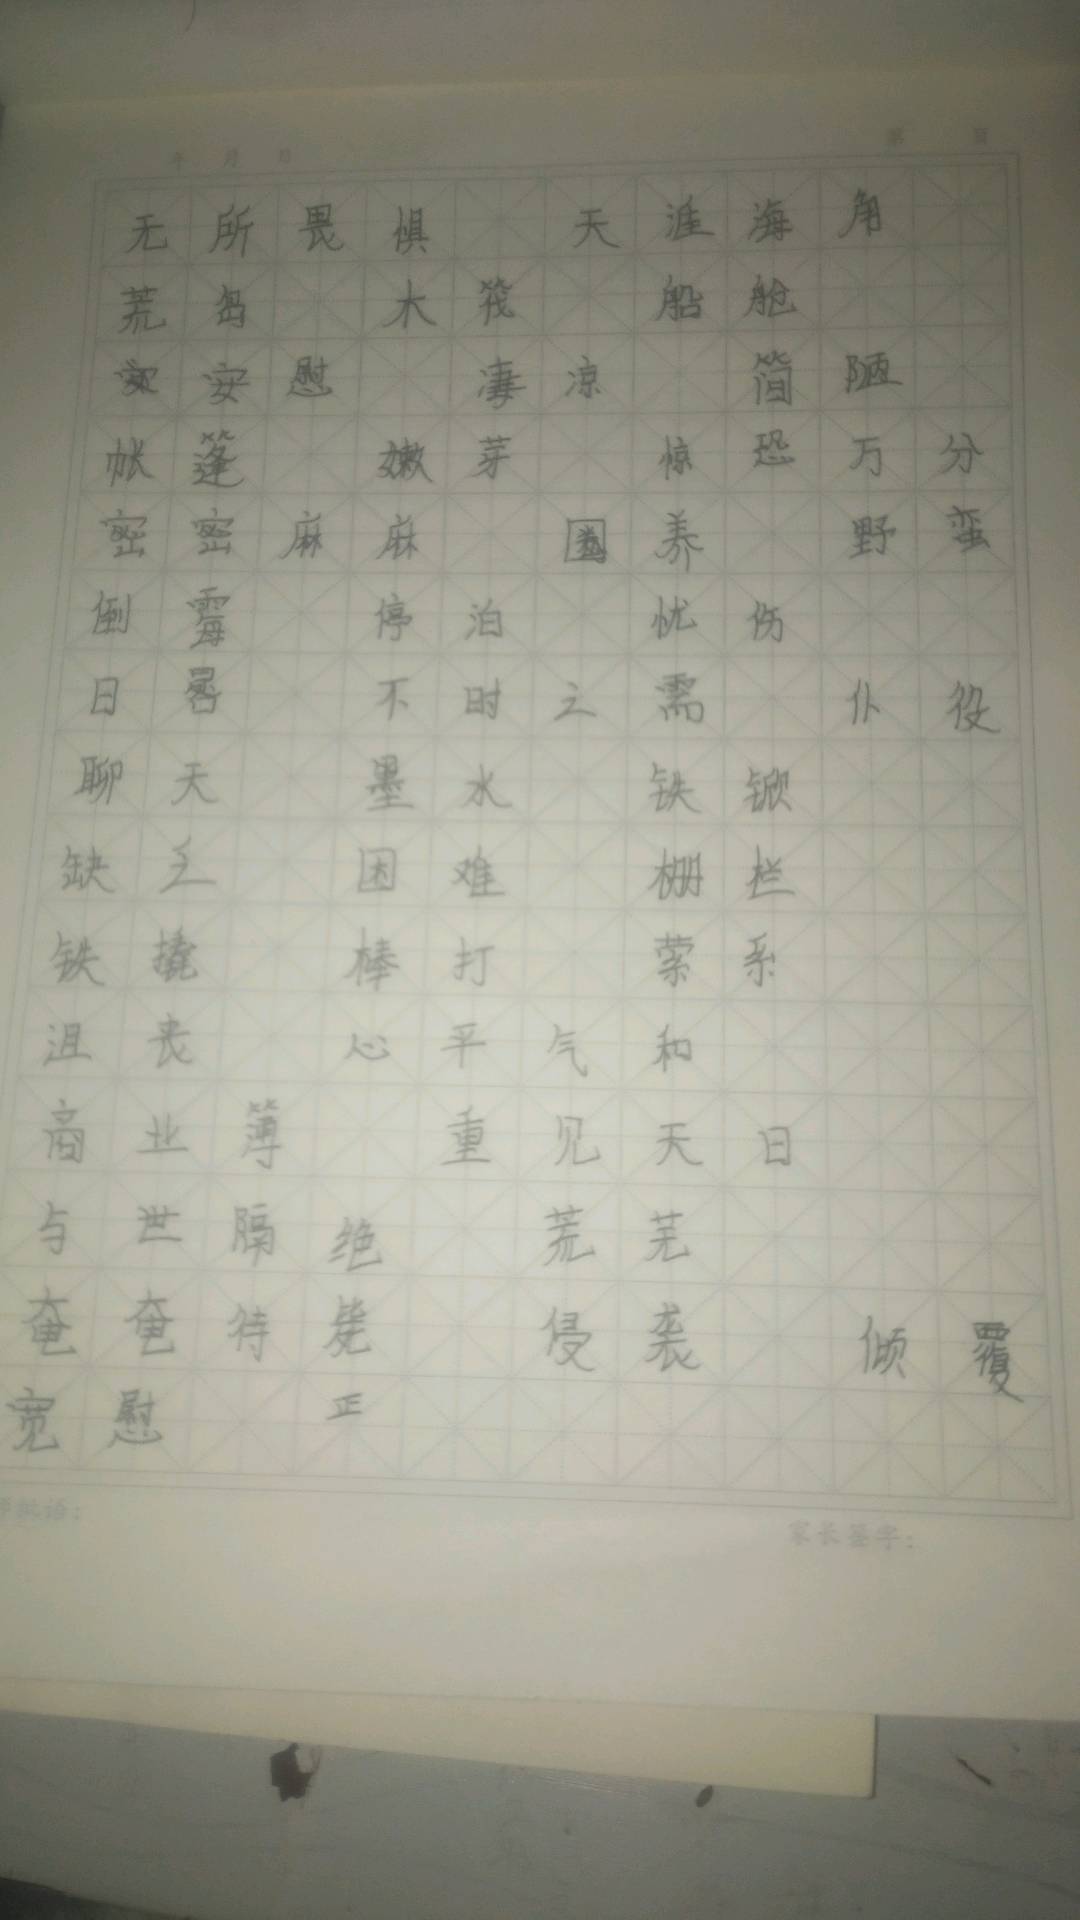 年 月 日 第 页
无所畏惧 天涯海角
荒岛 木筏 船舱
安慰 凄凉 简陋
帐篷 嫩芽 惊恐万分
密密麻麻 圈养 野蛮
倒霉 停泊 忧伤
日晷 不时之需 仆役
聊天 墨水 铁锨
缺乏 困难 栅栏
铁撬 棒打 萦系
沮丧 心平气和
商业簿 重见天日
与世隔绝 荒芜
奄奄待毙 侵袭 倾覆
宽慰 正
师批语: 家长签字: